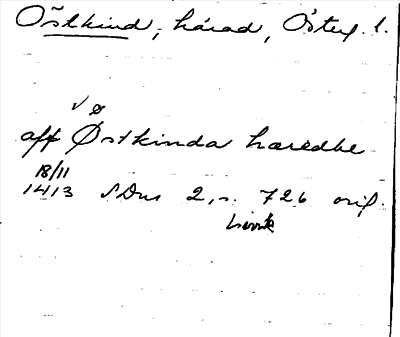 Östkind, härad, Österg. l.
v ø
aff Østkinda hæredhe
18/11
1413 SDns 2, s. 726 orig.